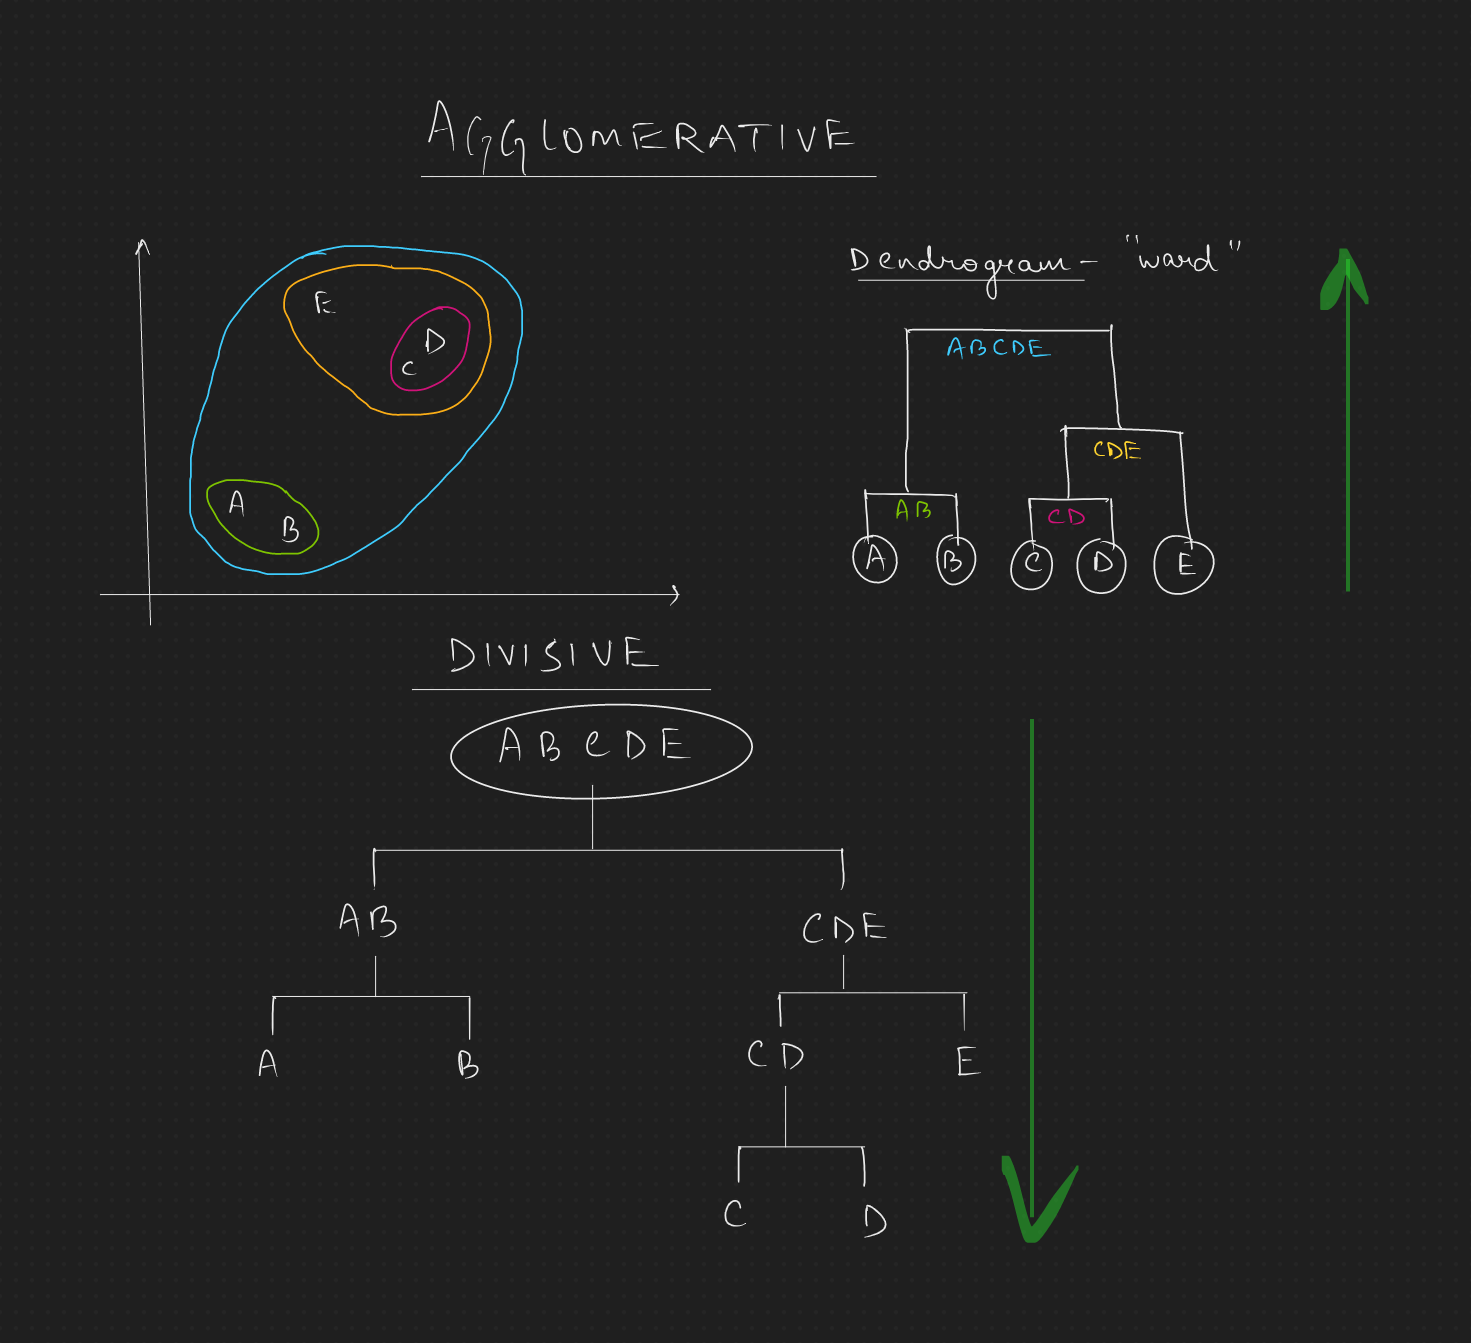 AGGLOMERATIVE
Dendrogram - "ward"
E
D
C
A
B
ABCDE
CDE
AB
CD
A B C D E
DIVISIVE
A B C D E
AB CDE
A B CD E
C D